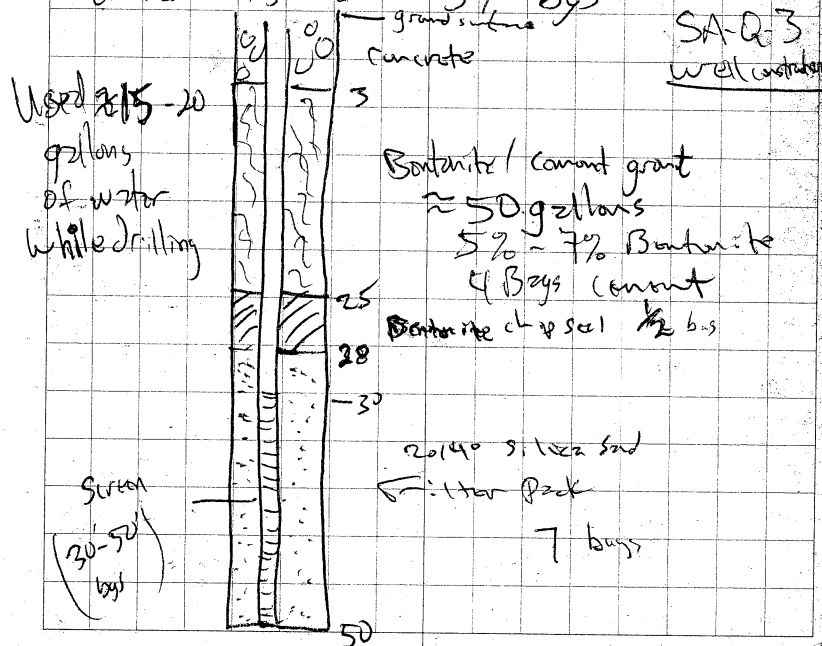 ground surface
SA-Q-3
Well construction
concrete
3
Used ≈15-20
gallons
of water
while drilling
Bentonite/Cement grout
≈ 50 gallons
5% - 7% Bentonite
4 Bags cement
25
Bentonite chip seal 1/2 bag
28
30
20/40 silica sand
Filter Pack
7 bags
Screen
(30'-50'
bgs)
50